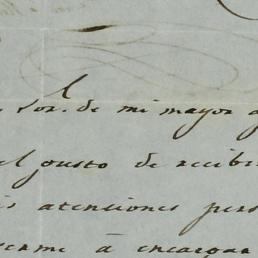 Sor. de mi mayor a
el gusto de recibi
is atenciones pers
erme á encargar